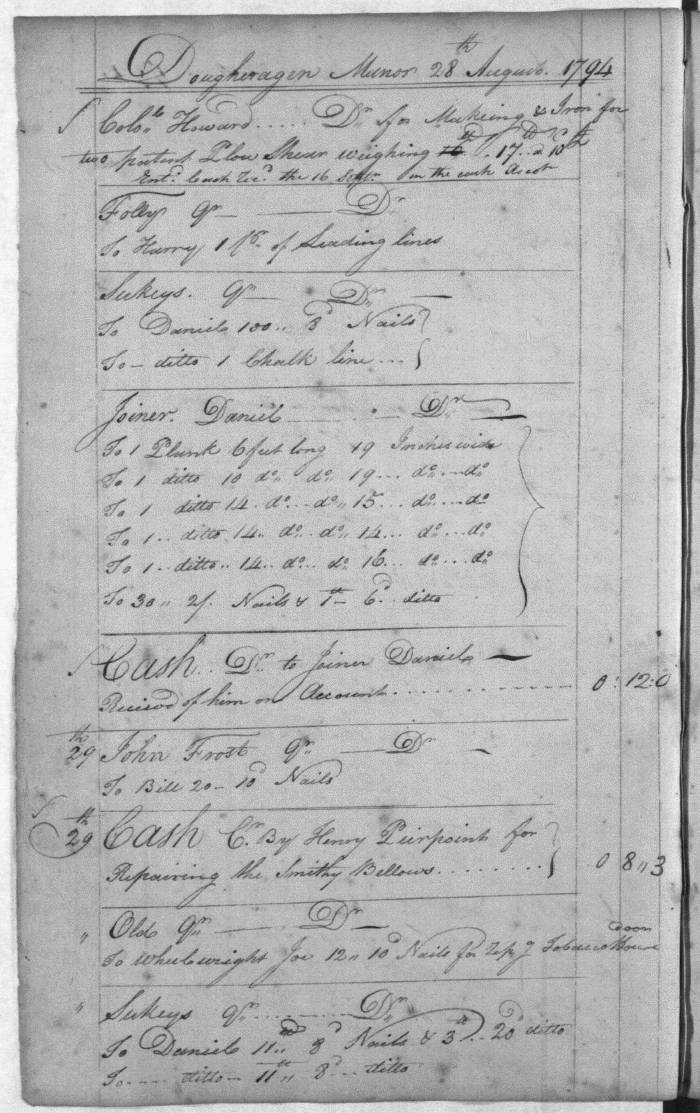 Dougheragen Manor 28th August. 1794
Colo. Howard..... Dr for Makeing & Iron for
two patent Plow Shear weighing 17 lb
Entd. Cash Recd. the 16 Septr in the cash Accot
Folly Qr — Dr
To Harry 1 pr. of Leading lines
Sukeys. Qr — Dr —
To Daniel 100,, 8d Nails
To — ditto 1 Chalk line...
Joiner. Daniel — Dr —
To 1 Plank 6 feet long 19 Inches wide
To 1 ditto 10 do,, do,, 19... do...do
To 1 ditto 14. do...do,, 15... do...do
To 1.. ditto 14.. do..do,, 14... do...do
To 1.. ditto.. 14.. do... do 16... do...do
To 30,, 2/. Nails & 1th — 6d.. ditto
Cash.. Dr. to Joiner Daniels —
Recievd of him on Account............. 0:12:0
29th John Frost Qr — Dr —
To Bill 20 — 10d Nails
29th Cash Cr. By Henry Peirpoint for
Repairing the Smithy Bellows......... 0 8,,3
,, Old Qr — Dr —
To Wheelwright Joe 12,, 10d Nails for Tobacco House
doors
,, Sukeys Qr......... Dr
To Daniel 11th,, 8d Nails & 3th.. 20d ditto
To.... ditto — 11th,, 8d... ditto